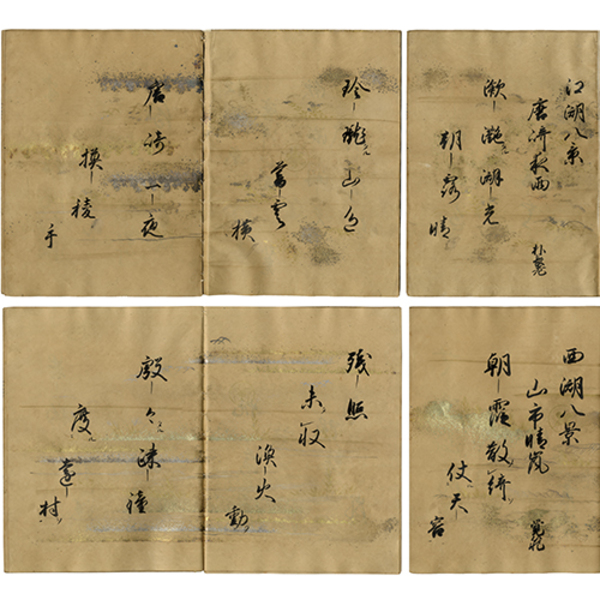 江湖八景
唐崎夜雨
瀲灔湖光
朝霧晴
玲瓏山色
暮雲
横
唐崎一夜
換稜
手
西湖八景
山市晴嵐
朝霞散綺
仗天
残照
未収
漁火動
殷々疎鐘
度遠村